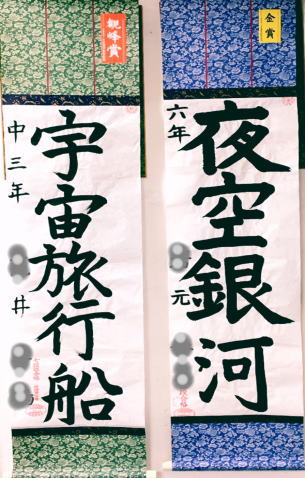 金賞
夜空銀河
六年
元
観峰賞
宇宙旅行船
中三年
井